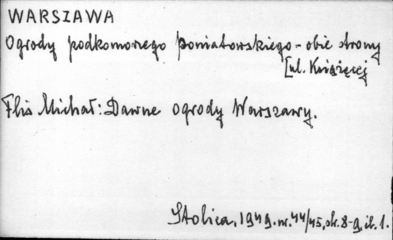 WARSZAWA
Ogrody podkomorzego Poniatowskiego - obie strony
[ul. Książęcej
Flis Michał: Dawne ogrody Warszawy.
Stolica, 1949. nr. 44/45, str. 8-9, il. 1.